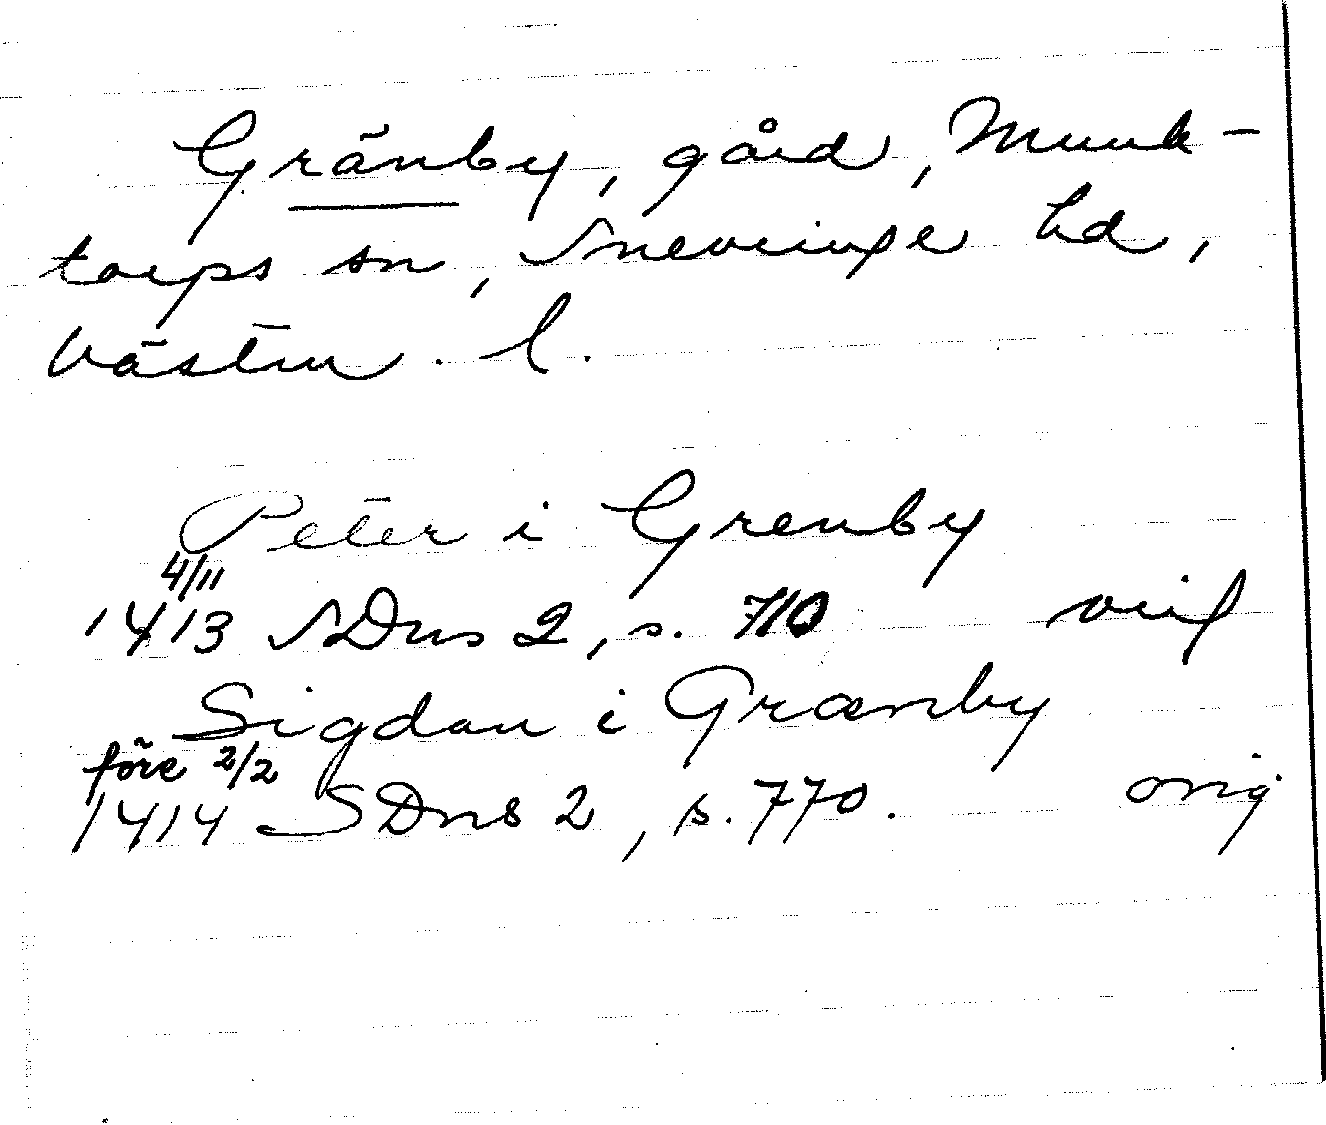 Gränby, gård, Munk-
torps sn, Snevringe hd,
Västm. l.
Peter i Grenby
4/11
1413 SDns 2, s. 710 vid
Sigdan i Grænby
före 2/2
1414 SDns 2, s. 770. orig